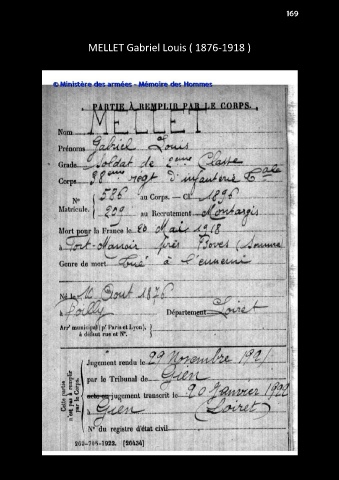 169
MELLET Gabriel Louis ( 1876-1918 )
© Ministère des armées - Mémoire des Hommes
PARTIE À REMPLIR PAR LE CORPS.
Nom MELLET
Prénoms Gabriel Louis
Grade Soldat de 2ème Classe
Corps regt d'infanterie
N° 586 au Corps. — Cl. 1896
Matricule. 209 au Recrutement Montargis
Mort pour la France le 20 Mai 1918
à près Boves (Somme
Genre de mort Tué à l'ennemi
Né le 10 Août 1876
à Poilly Département Loiret
Arr municipal (pr Paris et Lyon),
à défaut rue et N°.
Cette partie
n'est pas à remplir
par le Corps.
Jugement rendu le 29 Novembre 1921
par le Tribunal de Gien
acte ou jugement transcrit le 20 Janvier 1922
à Gien (Loiret)
N° du registre d'état civil
269-708-1922. [26434]